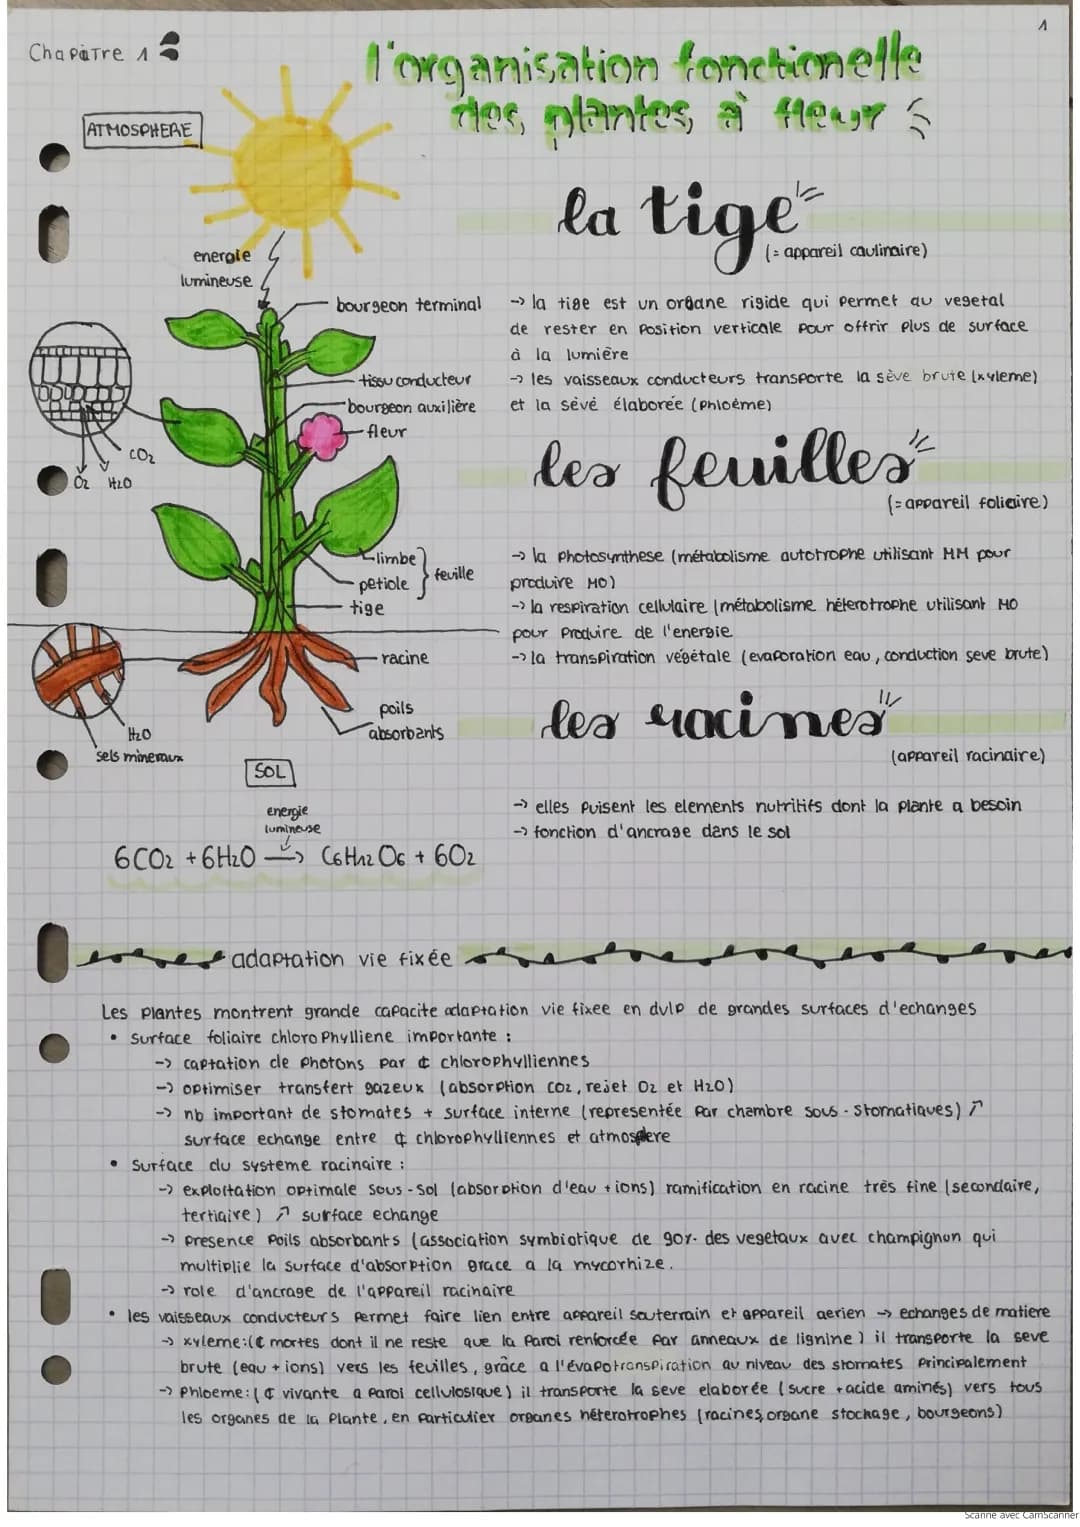 Chapitre 1
1
l'organisation fonctionelle
des plantes à fleur
ATMOSPHERE
la tige
(= appareil caulinaire)
energie
lumineuse
bourgeon terminal
tissu conducteur
bourgeon auxilière
fleur
CO2
O2 H2O
limbe
petiole
feuille
tige
racine
poils
absorbants
H2O
sels mineraux
SOL
-> la tige est un organe rigide qui permet au vegetal
de rester en position verticale pour offrir plus de surface
à la lumière
-> les vaisseaux conducteurs transporte la sève brute (xyleme)
et la sévé élaborée (phloème)
les feuilles
(= appareil foliaire)
-> la photosynthese (métabolisme autotrophe utilisant MM pour
produire MO)
-> la respiration cellulaire (métabolisme héterotrophe utilisant MO
pour produire de l'energie
-> la transpiration végétale (evaporation eau, conduction seve brute)
les racines
(appareil racinaire)
-> elles puisent les elements nutritifs dont la plante a besoin
-> fonction d'ancrage dans le sol
energie
lumineuse
6CO2 + 6H2O -> C6H12O6 + 6O2
adaptation vie fixée
Les plantes montrent grande capacite adaptation vie fixee en dvlp de grandes surfaces d'echanges
• surface foliaire chlorophylliene importante :
-> captation de photons par ¢ chlorophylliennes
-> optimiser transfert gazeux (absorption CO2, rejet O2 et H2O)
-> nb important de stomates + surface interne (representée par chambre sous-stomatiques) ↗
surface echange entre ¢ chlorophylliennes et atmosphere
• surface du systeme racinaire :
-> exploitation optimale sous-sol (absorption d'eau + ions) ramification en racine très fine (secondaire,
tertiaire) ↗ surface echange
-> presence poils absorbants (association symbiotique de 90% des vegetaux avec champignon qui
multiplie la surface d'absorption grace a la mycorhize.
-> role d'ancrage de l'appareil racinaire
• les vaisseaux conducteurs permet faire lien entre appareil souterrain et appareil aerien -> echanges de matiere
-> xyleme:(¢ mortes dont il ne reste que la paroi renforcée par anneaux de lignine) il transporte la seve
brute (eau + ions) vers les feuilles, grâce a l'évapotranspiration au niveau des stomates principalement
-> Phloeme: (¢ vivante a paroi cellulosique) il transporte la seve elaborée (sucre + acide aminés) vers tous
les organes de la plante, en particulier organes héterotrophes (racines, organe stockage, bourgeons)
Scanné avec CamScanner